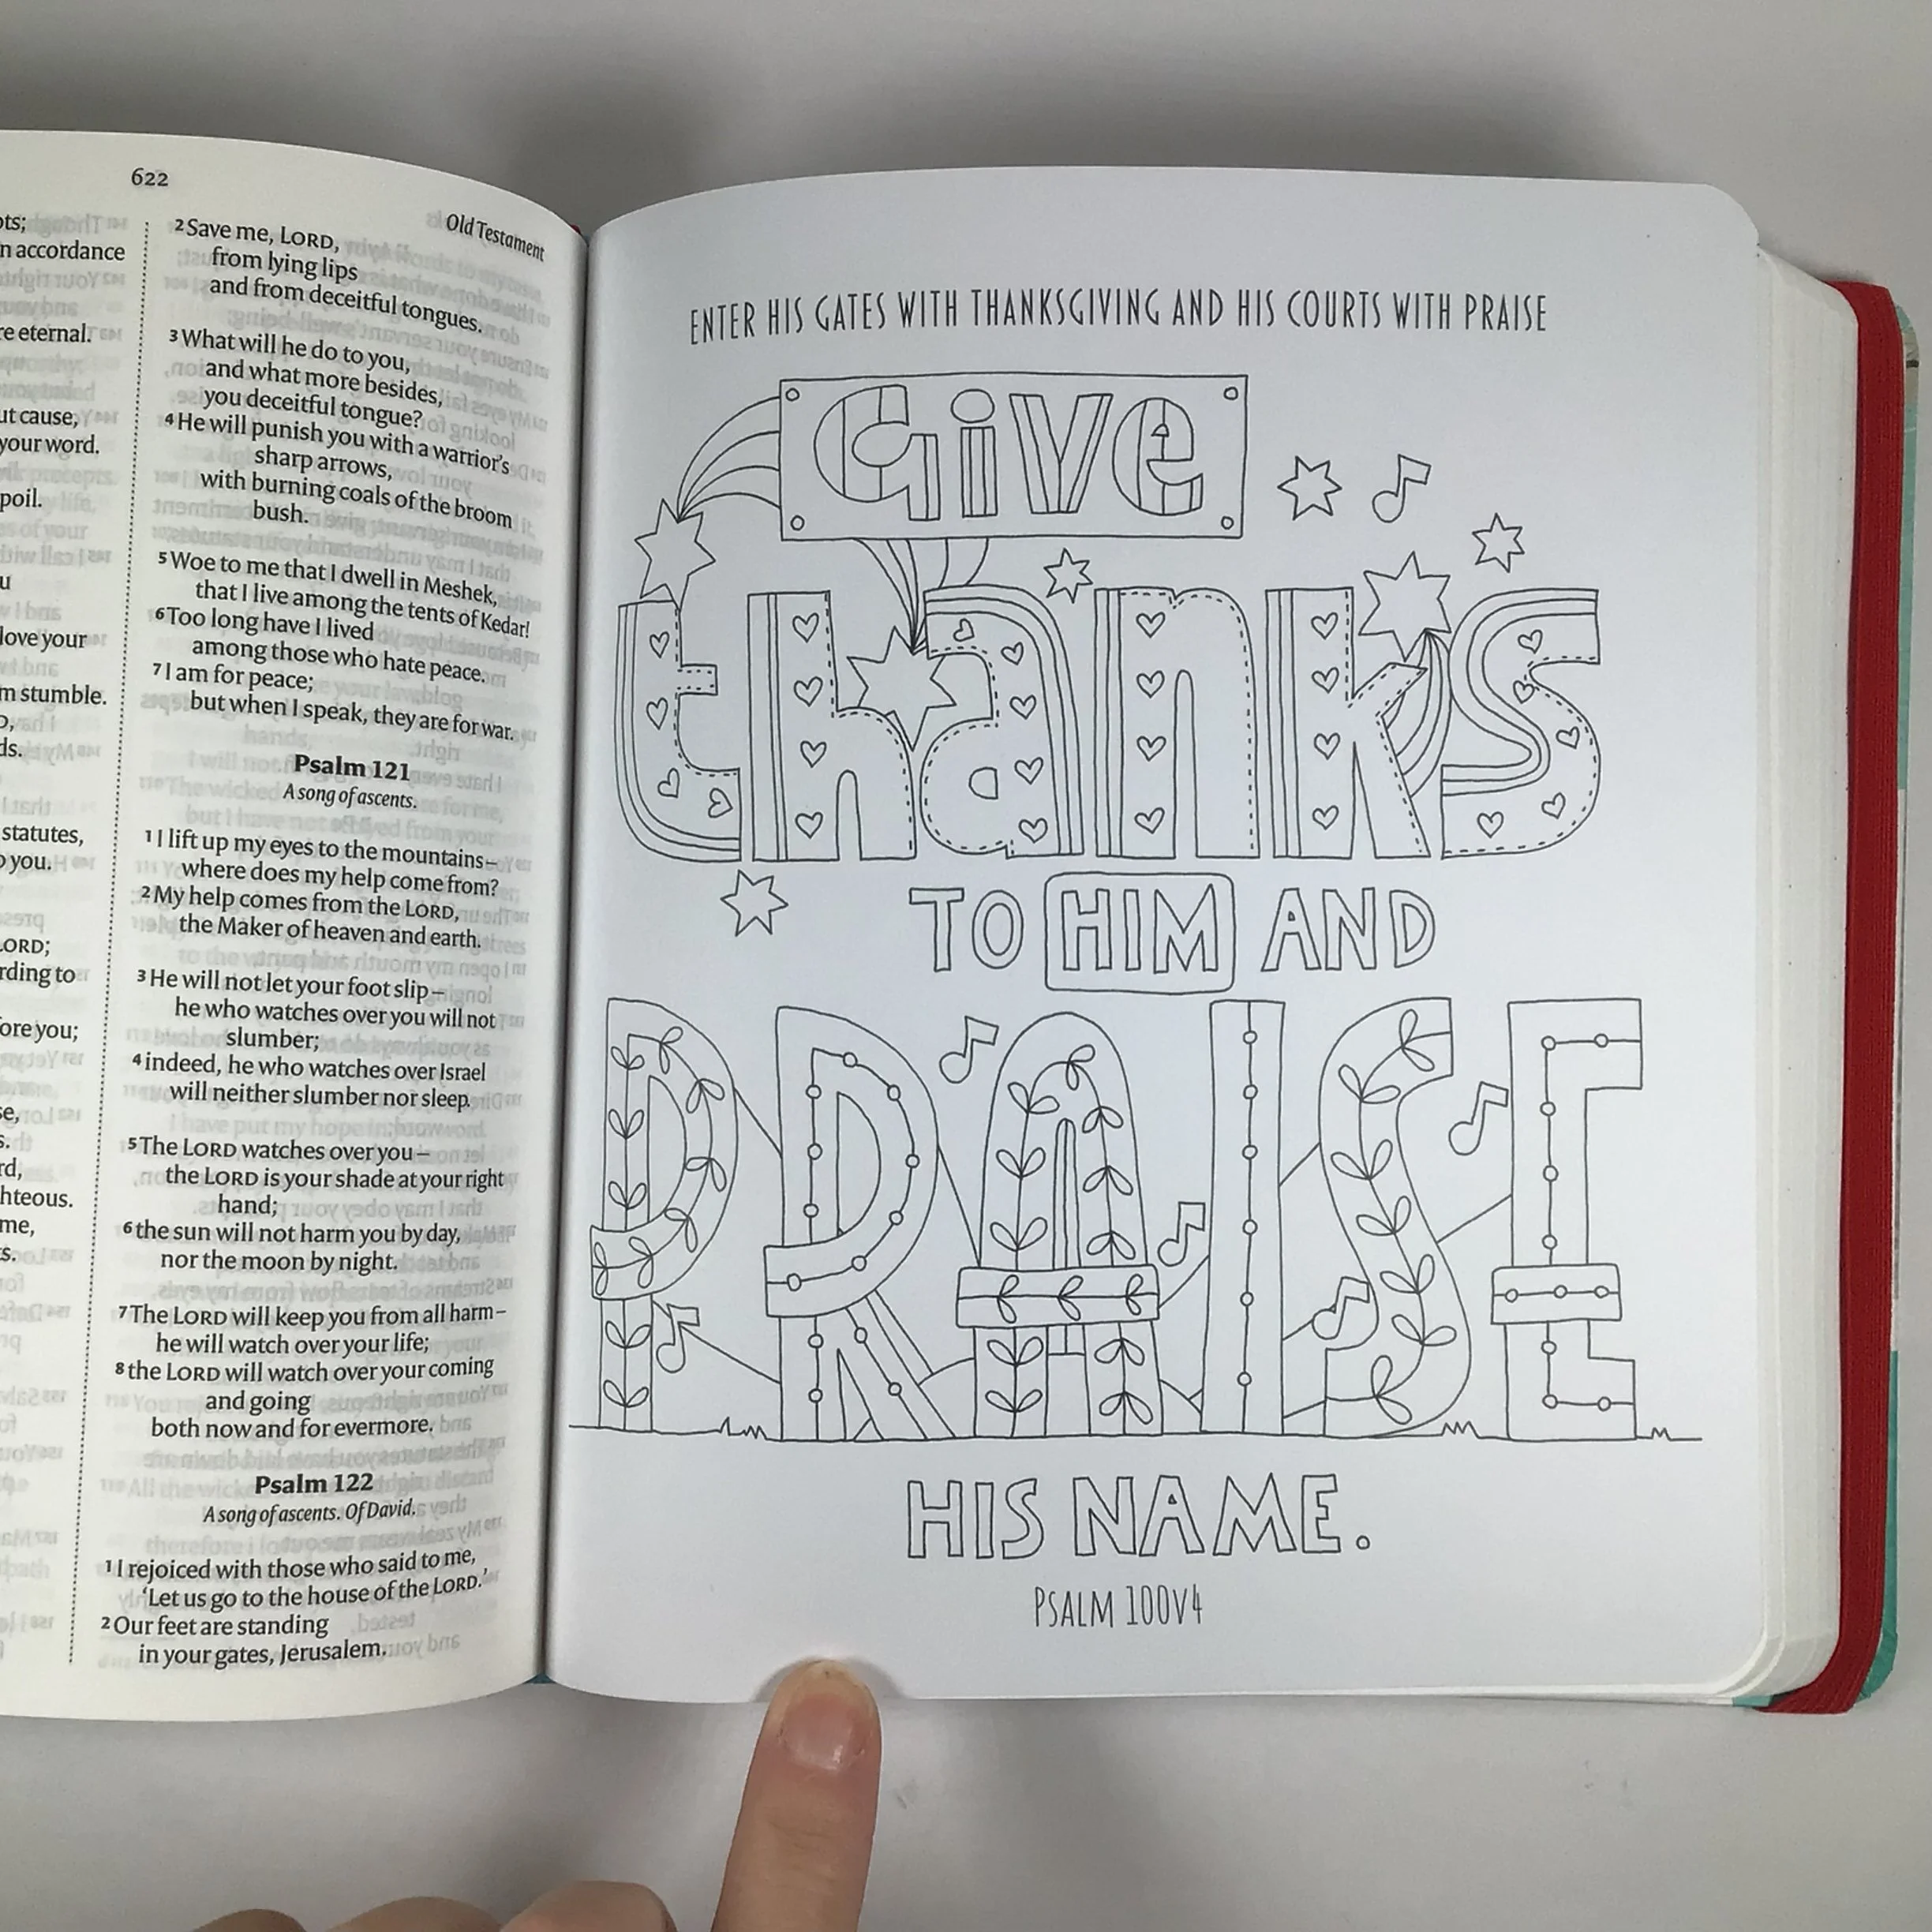 622
Old Testament
ots;
n accordance
re eternal.
ut cause,
your word.
poil.
u
love your
m stumble.
ds.
statutes,
o you.
LORD;
rding to
ore you;
se,
s.
rd,
hteous.
me,
s.
2 Save me, LORD,
from lying lips
and from deceitful tongues.
3 What will he do to you,
and what more besides,
you deceitful tongue?
4 He will punish you with a warrior's
sharp arrows,
with burning coals of the broom
bush.
5 Woe to me that I dwell in Meshek,
that I live among the tents of Kedar!
6 Too long have I lived
among those who hate peace.
7 I am for peace;
but when I speak, they are for war.
Psalm 121
A song of ascents.
1 I lift up my eyes to the mountains –
where does my help come from?
2 My help comes from the LORD,
the Maker of heaven and earth.
3 He will not let your foot slip –
he who watches over you will not
slumber;
4 indeed, he who watches over Israel
will neither slumber nor sleep.
5 The LORD watches over you –
the LORD is your shade at your right
hand;
6 the sun will not harm you by day,
nor the moon by night.
7 The LORD will keep you from all harm –
he will watch over your life;
8 the LORD will watch over your coming
and going
both now and for evermore.
Psalm 122
A song of ascents. Of David.
1 I rejoiced with those who said to me,
'Let us go to the house of the LORD.'
2 Our feet are standing
in your gates, Jerusalem.
ENTER HIS GATES WITH THANKSGIVING AND HIS COURTS WITH PRAISE
Give
thanks
TO HIM AND
PRAISE
HIS NAME.
PSALM 100V4